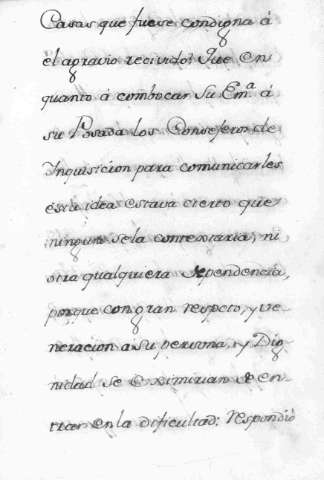 Casas que fuese condigna á
èl agravio recivido: Que En
quanto á combocar Su Em.ª á
su Posada los Consejeros de
Inquisicion para comunicarles
ésta idea estava cierto que
ninguno se la contextaria, ni
otra qualquiera dependencia,
porque con gran respeto, y ve-
neracion a su persona, y Dig-
nidad se eximirian de en-
trar en la dificultad: respondió